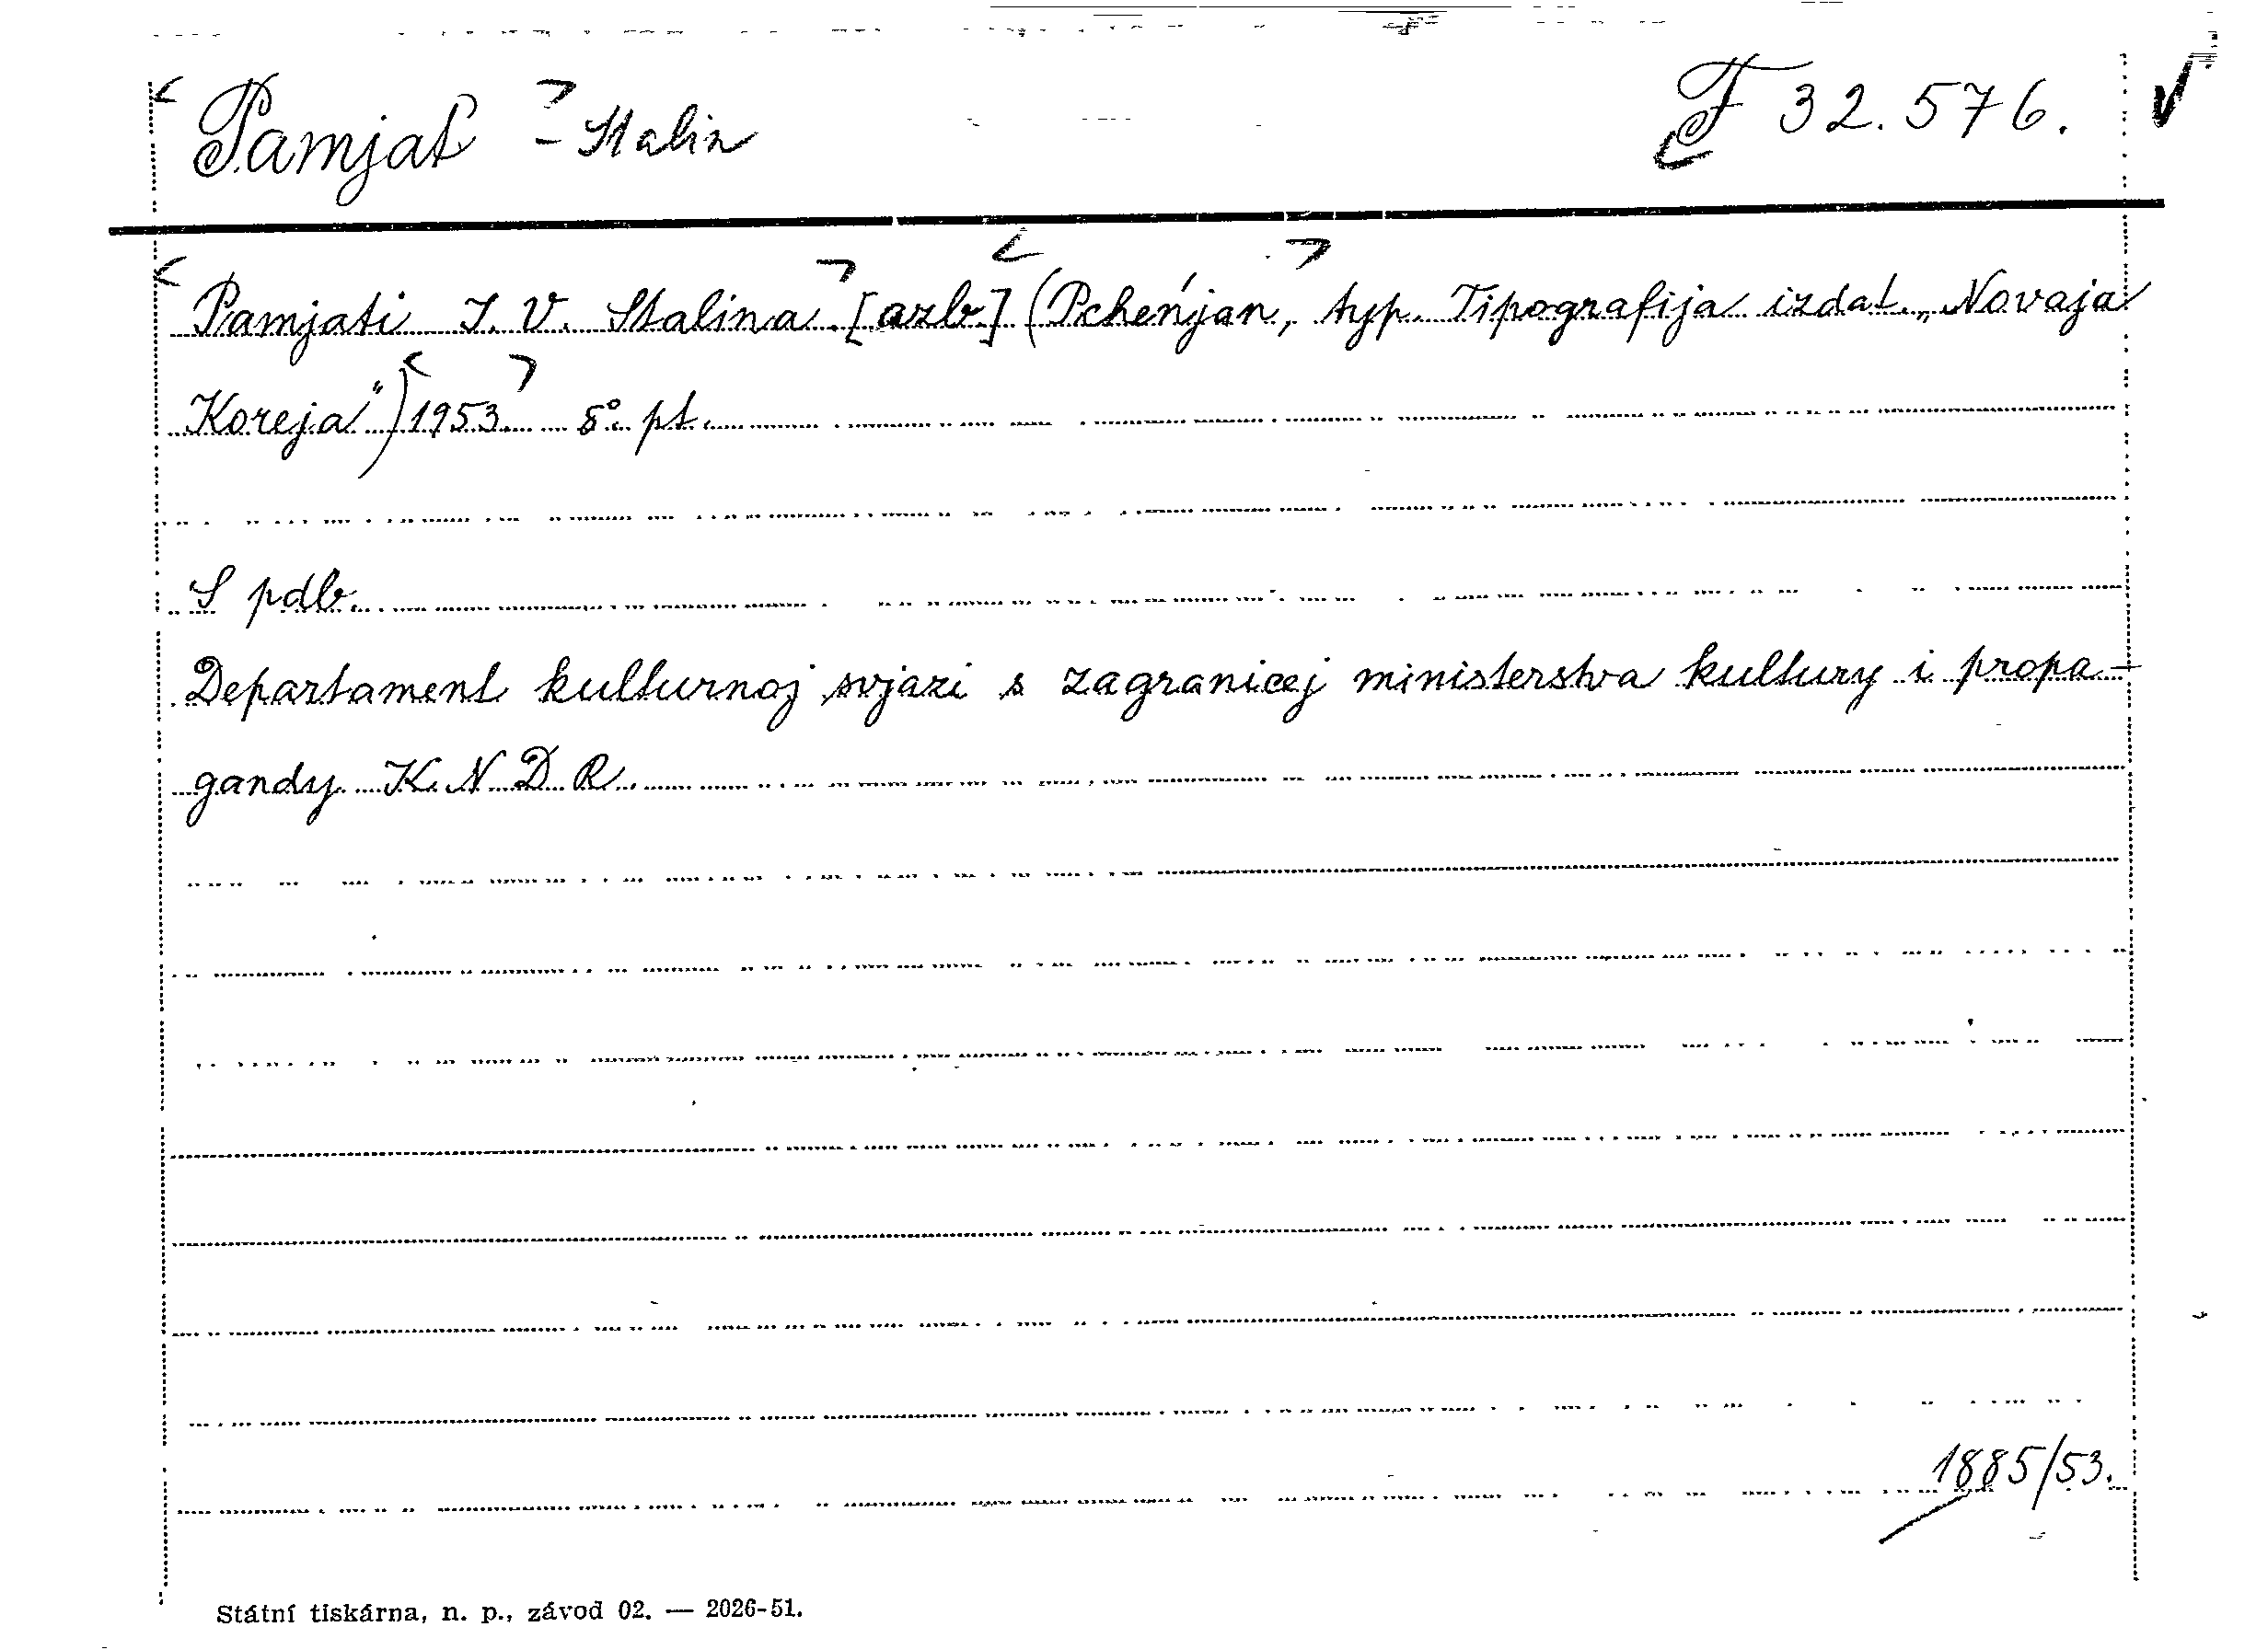 Pamjať - Stalin F 32.576.
Pamjati I. V. Stalina. [azb.] (Pcheńjan, typ. Tipografija izdat. „Novaja
Koreja") 1953. 8°. pt.
S pdb.
Departament kulturnoj svjazi s zagranicej ministerstva kultury i propa-
gandy K. N. D. R.
1885/53.
Státní tiskárna, n. p., závod 02. — 2026-51.